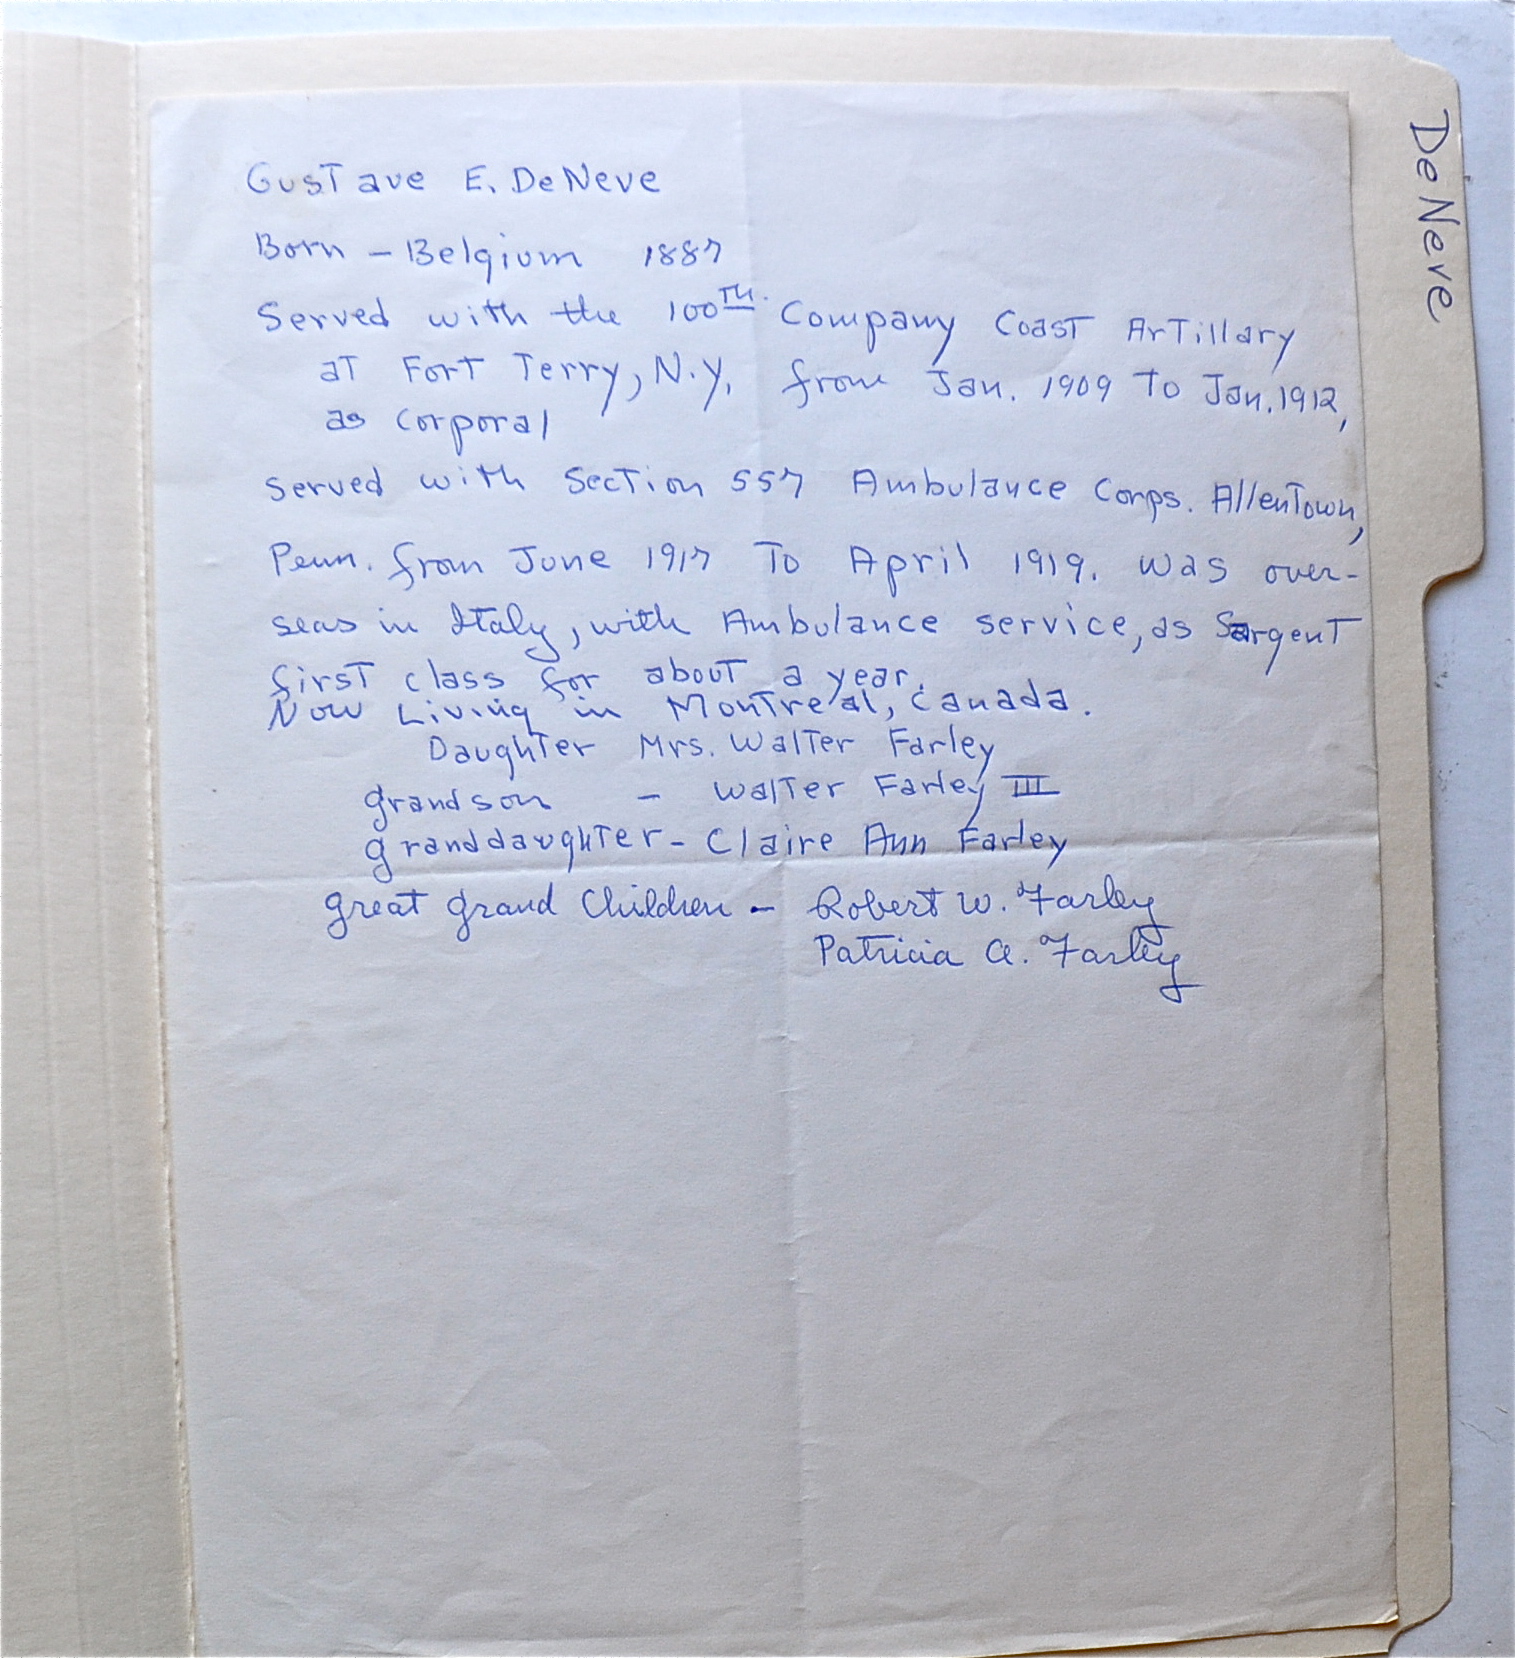 Gustave E. DeNeve
Born - Belgium 1887
Served with the 100TH. Company Coast Artillary
at Fort Terry, N.Y. from Jan. 1909 to Jan. 1912,
as corporal
served with Section 557 Ambulance Corps. Allentown,
Penn. from June 1917 To April 1919. was over-
seas in Italy, with Ambulance service, as Sargent
first class for about a year.
Now Living in Montreal, Canada.
Daughter Mrs. Walter Farley
grandson - Walter Farley III
granddaughter - Claire Ann Farley
great grand Children - Robert W. Farley
Patricia A. Farley
DeNeve